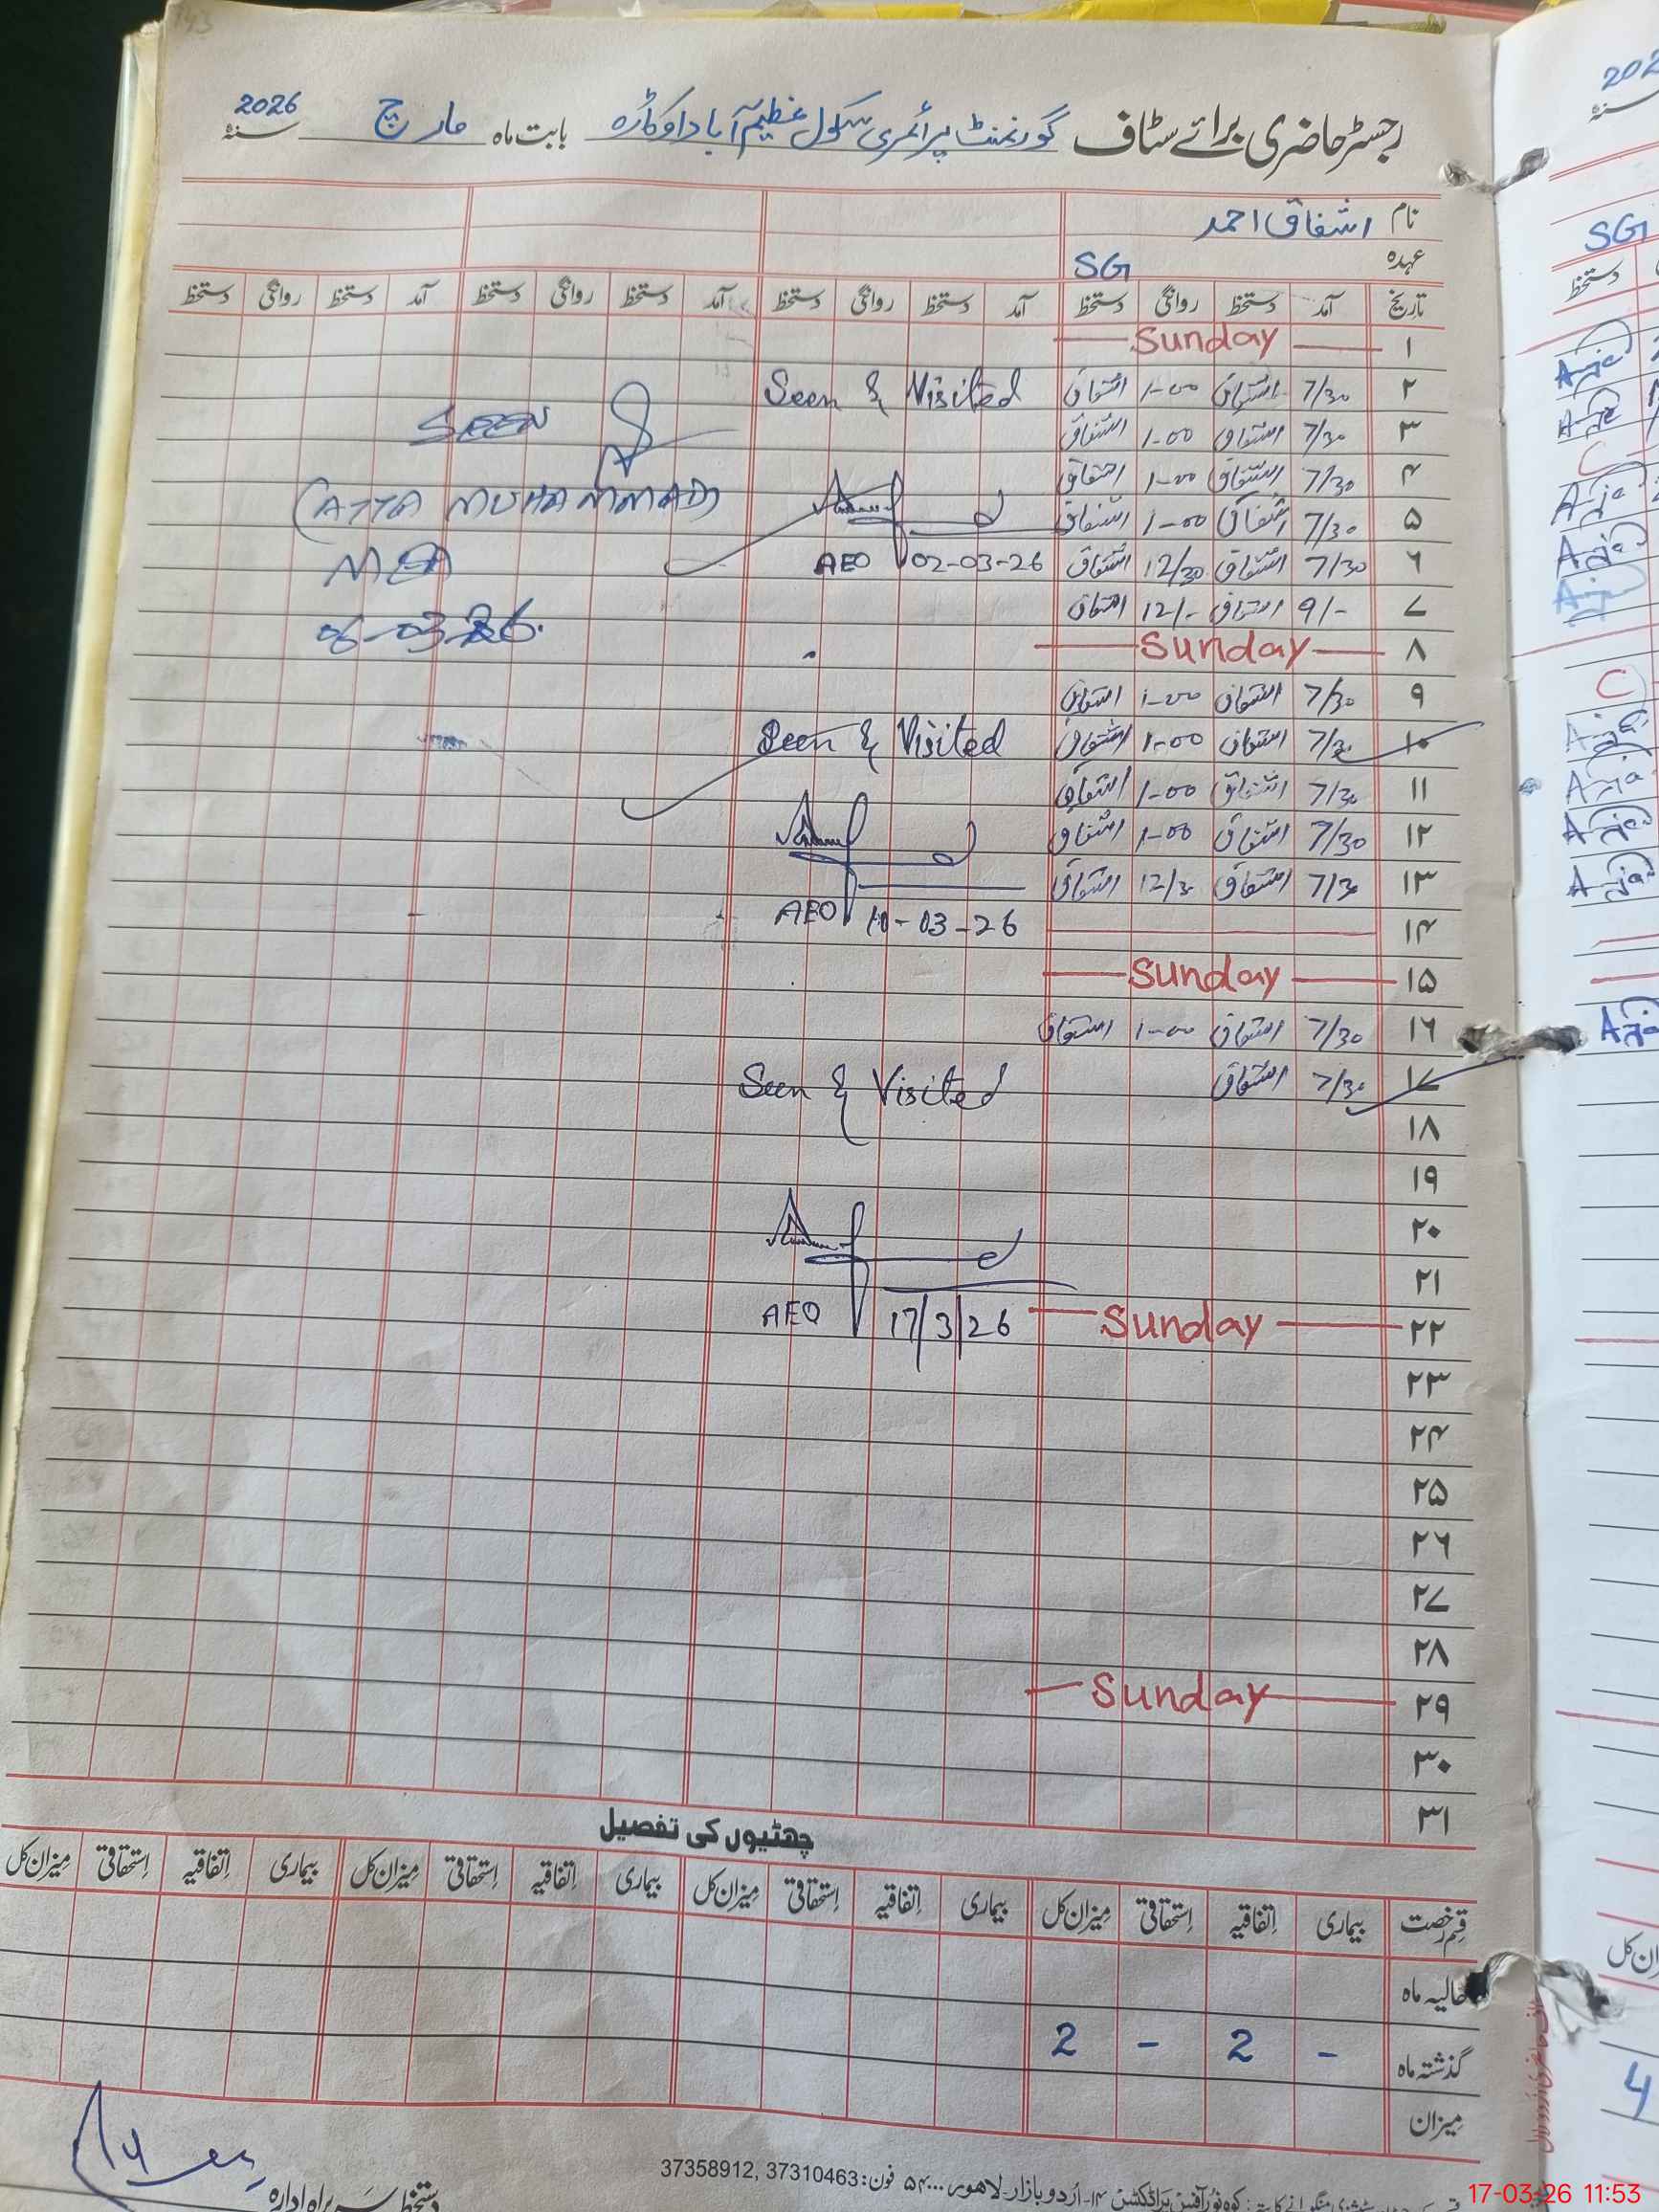 رجسٹر حاضری برائے سٹاف گورنمنٹ پرائمری سکول عظیم آباد اوکاڑہ بابت ماہ مارچ سنۂ 2026
نام اشفاق احمد
عہدہ SG
تاریخ آمد دستخط روانگی دستخط آمد دستخط روانگی دستخط آمد دستخط روانگی دستخط آمد دستخط روانگی دستخط
۱ Sunday
۲ 7/30 اشفاق 1-00 اشفاق Seen & Visited
۳ 7/30 اشفاق 1-00 اشفاق SEEN
۴ 7/30 اشفاق 1-00 اشفاق (ATTA MUHAMMAD)
۵ 7/30 اشفاق 1-00 اشفاق
۶ 7/30 اشفاق 12/30 اشفاق AEO 02-03-26 MEA
۷ 9/- اشفاق 12/- اشفاق 06-03-26.
۸ Sunday
۹ 7/30 اشفاق 1-00 اشفاق
۱۰ 7/30 اشفاق 1-00 اشفاق Seen & Visited
۱۱ 7/30 اشفاق 1-00 اشفاق
۱۲ 7/30 اشفاق 1-00 اشفاق
۱۳ 7/30 اشفاق 12/30 اشفاق AEO 10-03-26
۱۴
۱۵ Sunday
۱۶ 7/30 اشفاق 1-00 اشفاق
۱۷ 7/30 اشفاق Seen & Visited
۱۸
۱۹
۲۰
۲۱
۲۲ Sunday AEO 17/3/26
۲۳
۲۴
۲۵
۲۶
۲۷
۲۸
۲۹ Sunday
۳۰
۳۱
چھٹیوں کی تفصیل
قسم رخصت بیماری اتفاقیہ استحقاقی میزان کل بیماری اتفاقیہ استحقاقی میزان کل بیماری اتفاقیہ استحقاقی میزان کل بیماری اتفاقیہ استحقاقی میزان کل
حالیہ ماہ
گذشتہ ماہ - 2 - 2
میزان
دستخط سربراہ ادارہ
اُردو بازار لاہور... ۵۴ فون: 37310463, 37358912
17-03-26 11:53